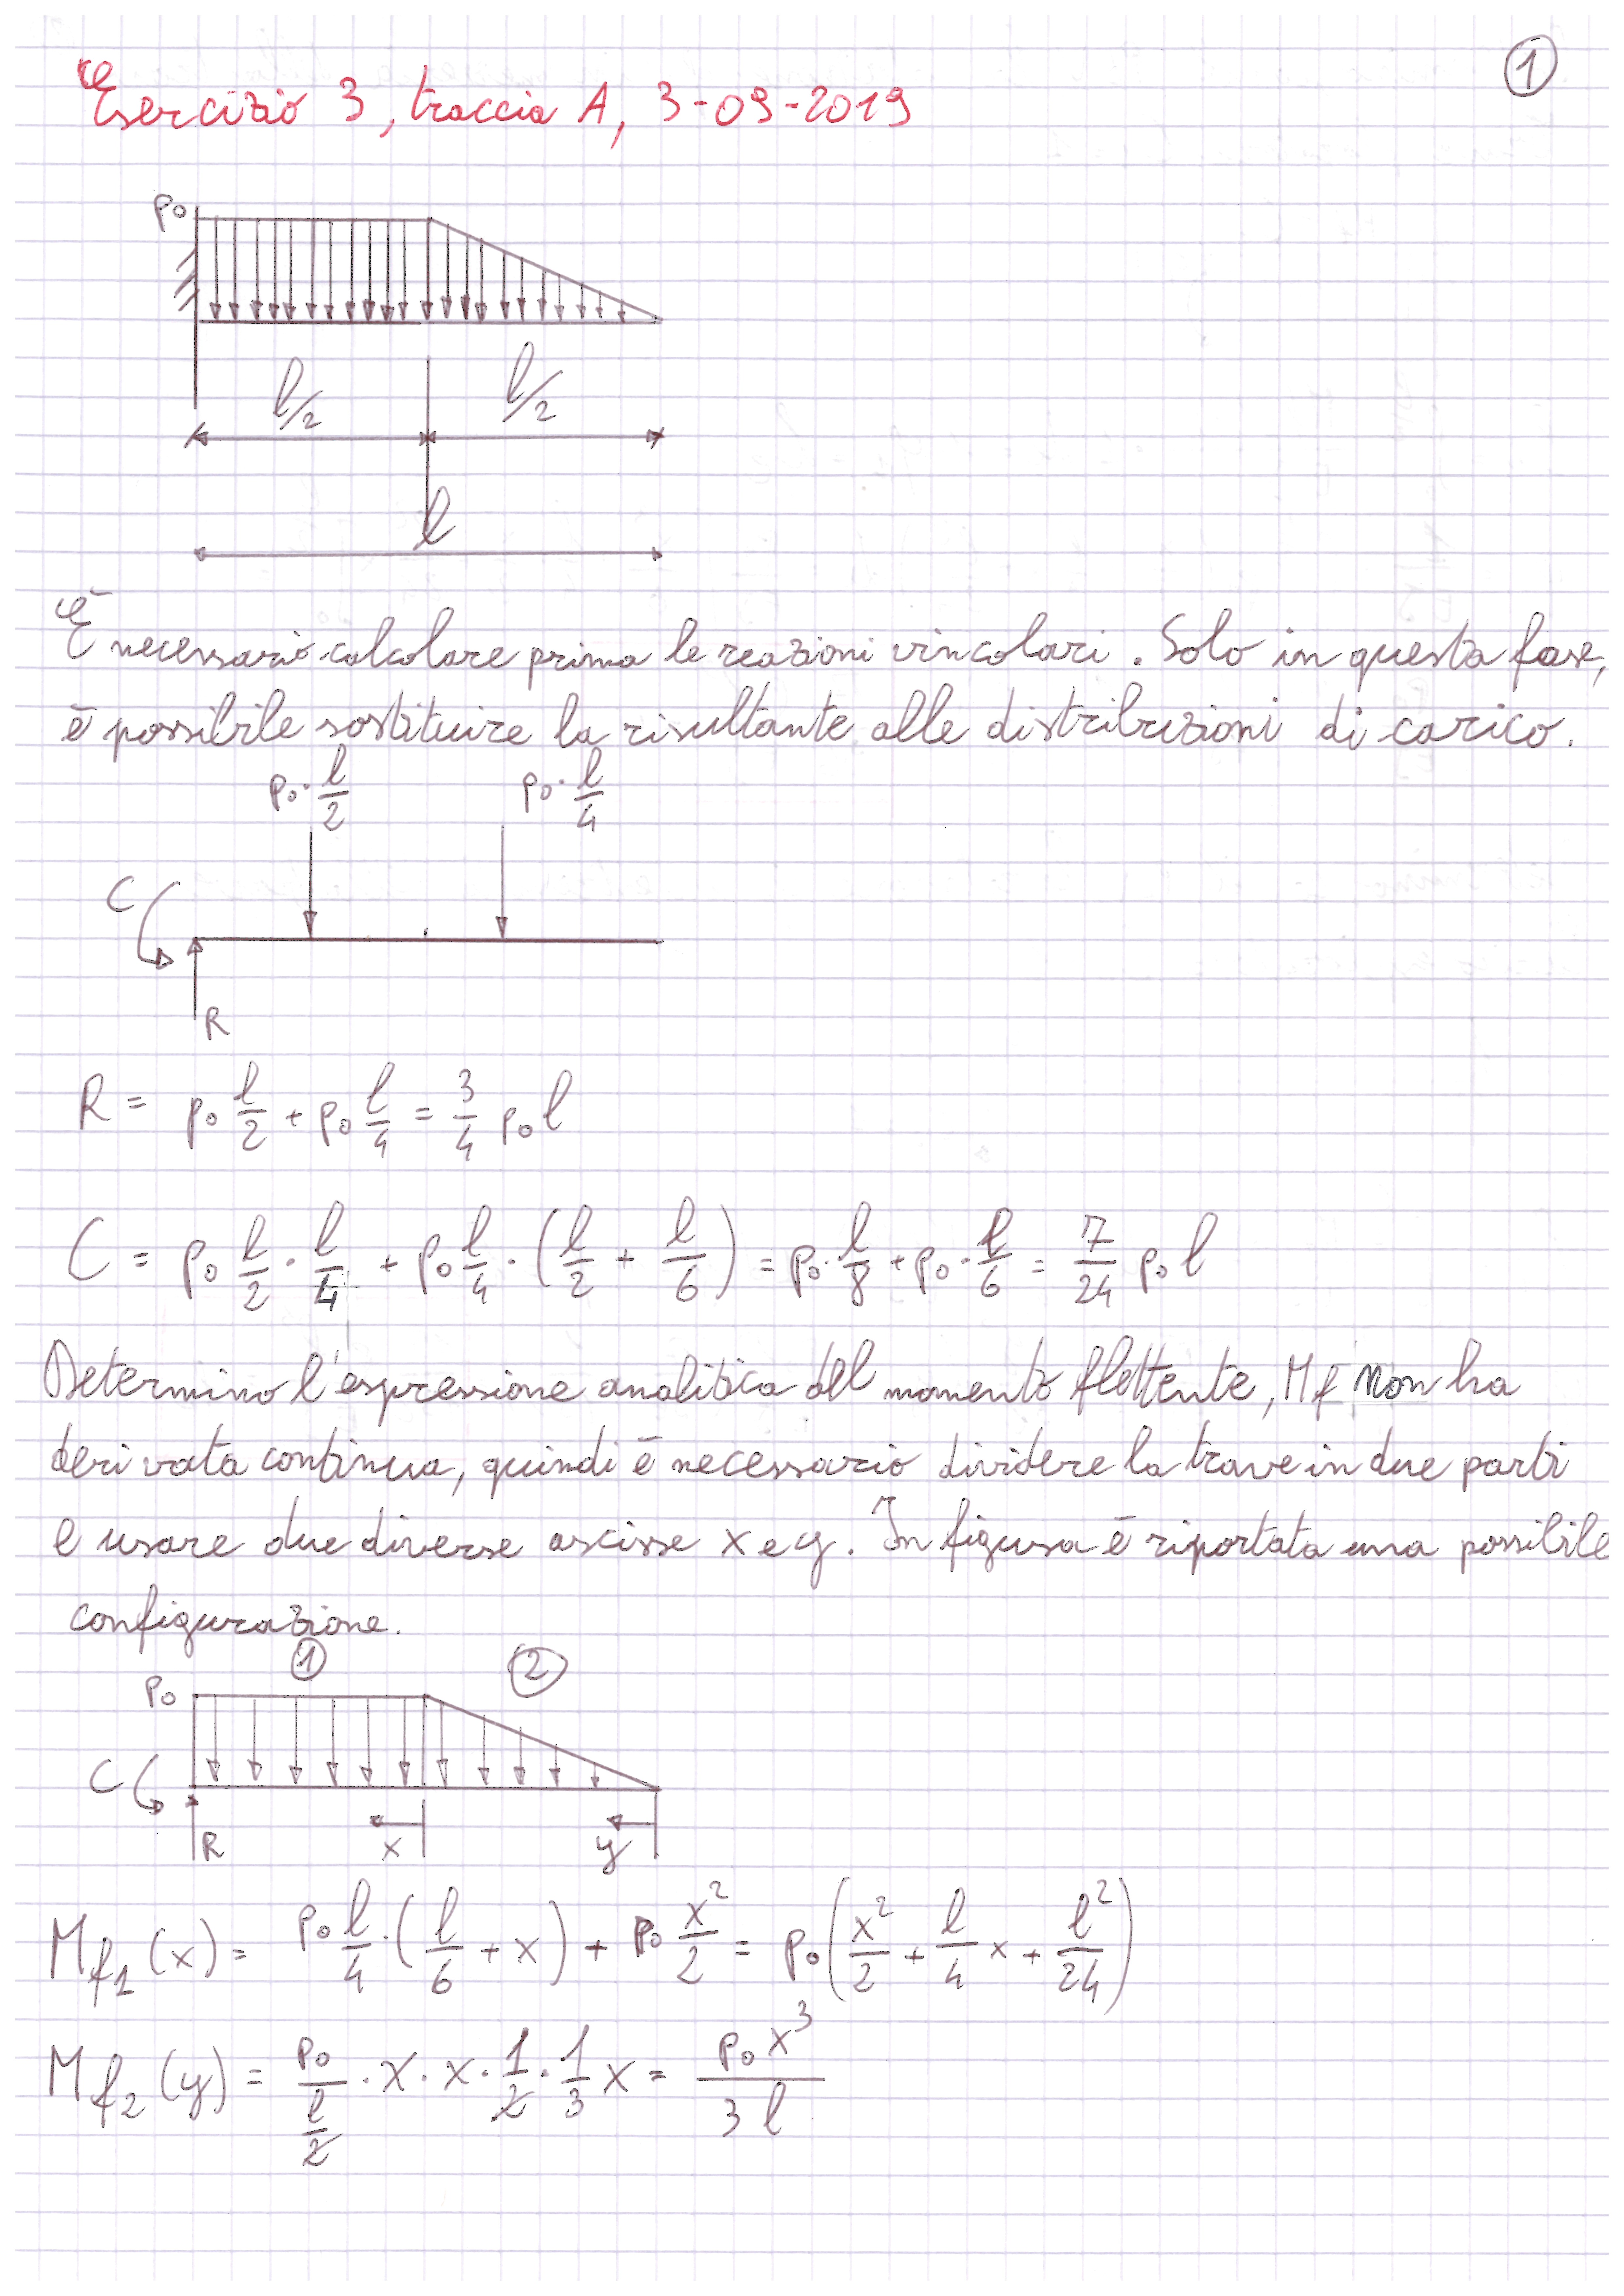 1
Esercizio 3, traccia A, 3-09-2019
p₀
l/2 l/2
l
É necessario calcolare prima le reazioni vincolari. Solo in questa fase,
é possibile sostituire la risultante alle distribuzioni di carico.
p₀·l/2 p₀·l/4
C
R
R = p₀ l/2 + p₀ l/4 = 3/4 p₀l
C = p₀ l/2 · l/4 + p₀ l/4 · (l/2 + l/6) = p₀·l/8 + p₀·l/6 = 7/24 p₀l
Determino l'espressione analitica del momento flettente, Mf non ha
derivata continua, quindi é necessario dividere la trave in due parti
e usare due diverse ascisse x e y. In figura é riportata una possibile
configurazione.
1 2
p₀
C
R x y
Mf₁(x) = p₀ l/4·(l/6 + x) + p₀ x²/2 = p₀(x²/2 + l/4 x + l²/24)
Mf₂(y) = p₀/(l/2) · x · x · 1/2 · 1/3 x = p₀x³/3l